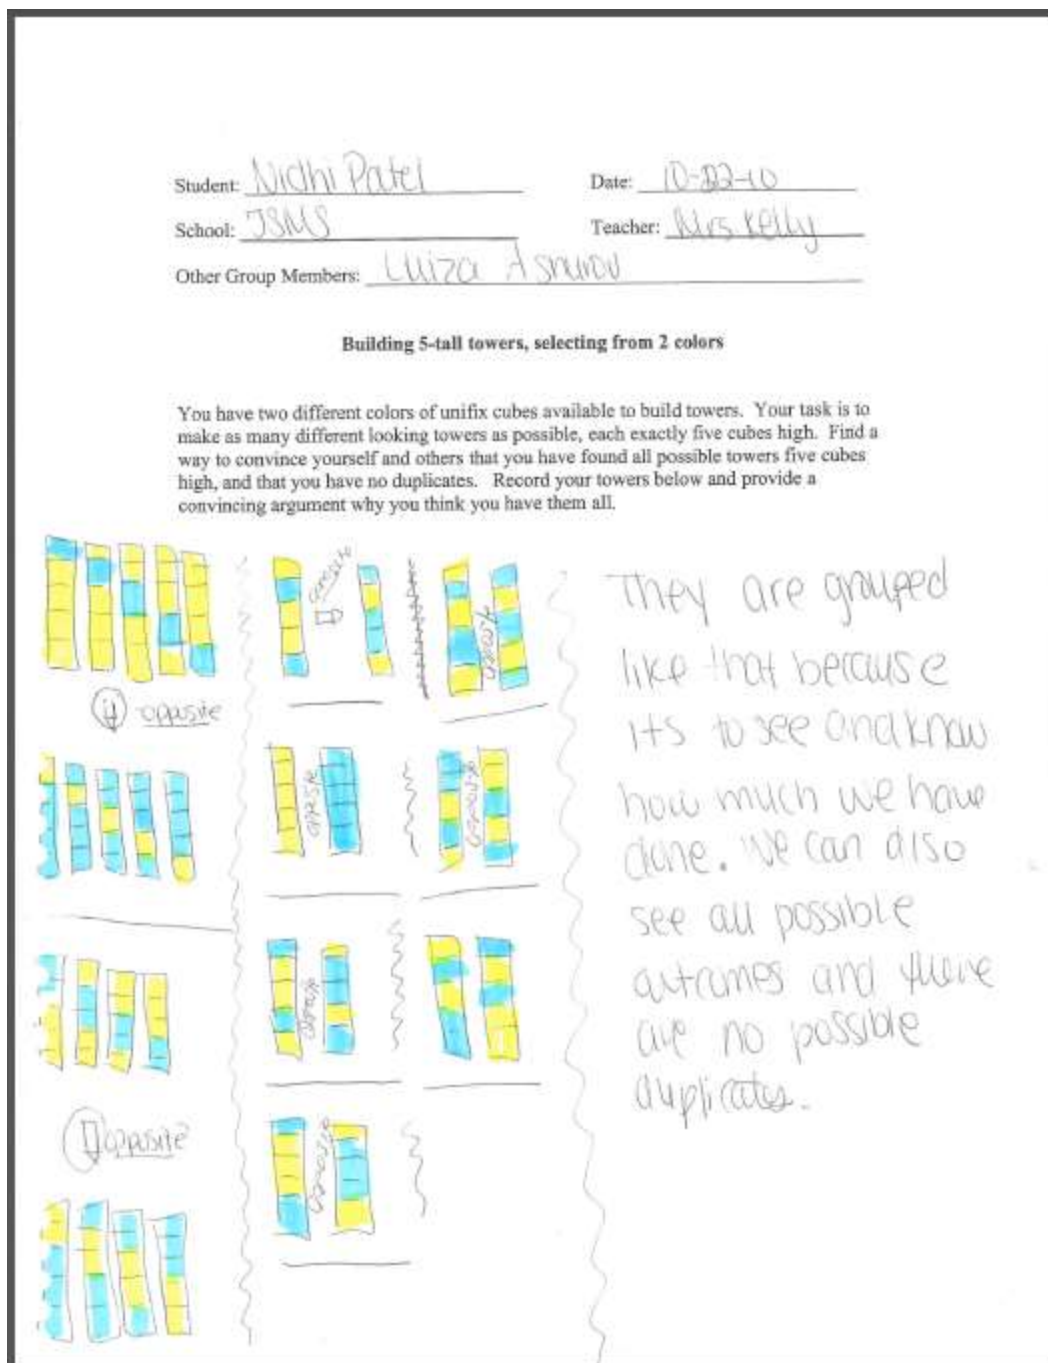 Student: Nidhi Patel
Date: 10-22-10
School: JSMS
Teacher: Mrs Kelly
Other Group Members: Luiza Asnurov
Building 5-tall towers, selecting from 2 colors
You have two different colors of unifix cubes available to build towers. Your task is to
make as many different looking towers as possible, each exactly five cubes high. Find a
way to convince yourself and others that you have found all possible towers five cubes
high, and that you have no duplicates. Record your towers below and provide a
convincing argument why you think you have them all.
opposite
opposite
opposite
opasite
opposite
opposite
opposite
oppasite
opposite
They are grouped
like that because
its to see and know
how much we have
done. We can also
see all possible
outcomes and there
are no possible
duplicates.